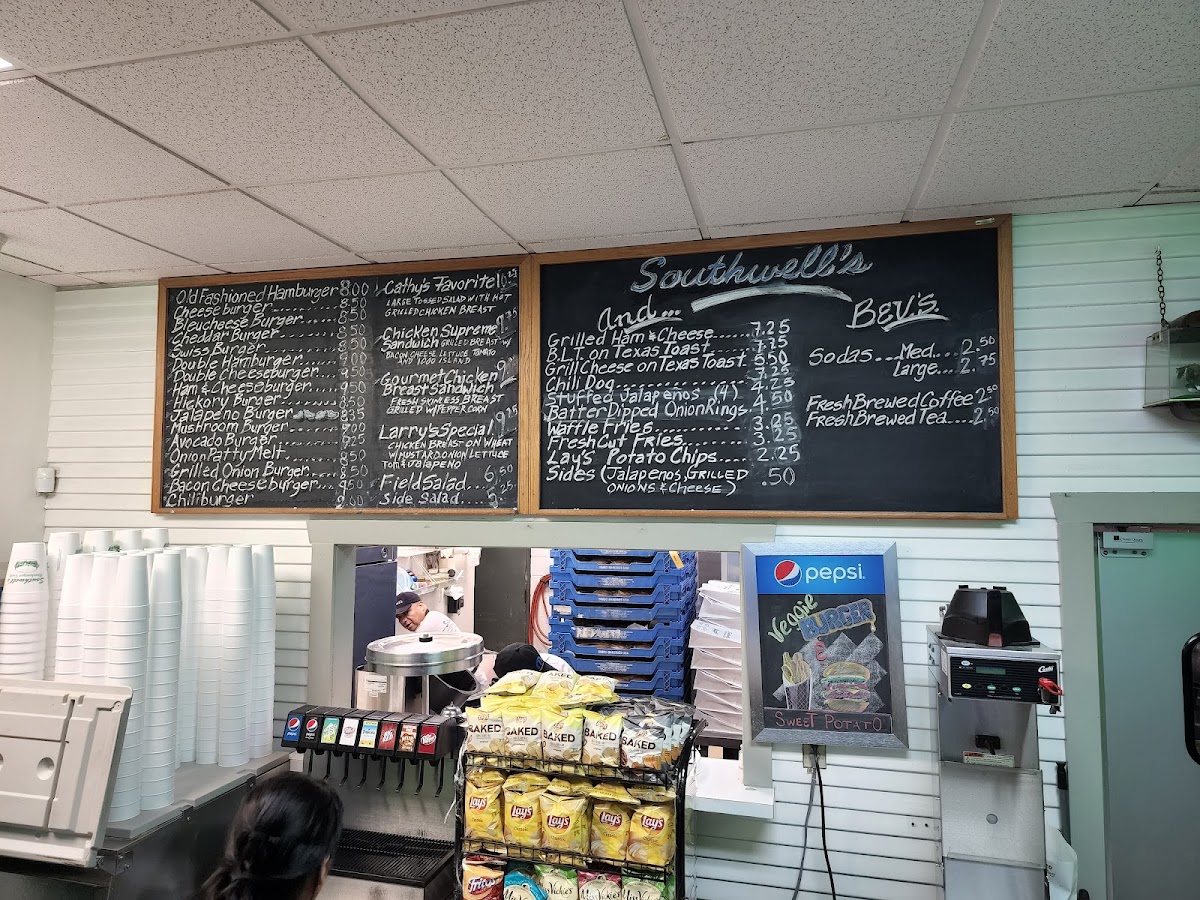 Old Fashioned Hamburger 8.00
Cheeseburger 8.50
Bleucheese Burger 8.50
Cheddar Burger 8.50
Swiss Burger 8.50
Double Hamburger
Double Cheeseburger
Ham & Cheeseburger
Hickory Burger
Jalapeno Burger
Mushroom Burger
Avocado Burger
Onion Patty Melt
Grilled Onion Burger
Bacon Cheeseburger
Chiliburger
Cathy's Favorite
LARGE TOSSED SALAD WITH HOT
GRILLED CHICKEN BREAST
Chicken Supreme
Sandwich GRILLED BREAST W/
BACON CHEESE LETTUCE TOMATO
AND 1000 ISLAND
Gourmet Chicken
Breast Sandwich
FRESH SKINLESS BREAST
GRILLED W/PEPPERCORN
Larry's Special 9.25
CHICKEN BREAST ON WHEAT
W/MUSTARD ONION LETTUCE
TOM & JALAPENO
Field Salad 6.50
Side Salad
Southwell's
And...
Grilled Ham & Cheese 7.25
B.L.T. on Texas Toast 7.75
Grill Cheese on Texas Toast 5.50
Chili Dog 7.25
Stuffed Jalapeños (4) 4.25
Batter Dipped Onion Rings 4.50
Waffle Fries 3.25
Fresh Cut Fries 3.25
Lay's Potato Chips 2.25
Sides (Jalapenos, GRILLED
ONIONS & CHEESE) .50
Bev's.
Sodas...Med... 2.50
Large... 2.75
Fresh Brewed Coffee 2.50
Fresh Brewed Tea.... 2.50
pepsi
Veggie
BURGER
SWEET POTATO
BAKED
BAKED
BAKED
BAKED
BAKED
Lay's
Lay's
Lay's
Lay's
Lay's
Fritos
Miss Vickie's
Curtis